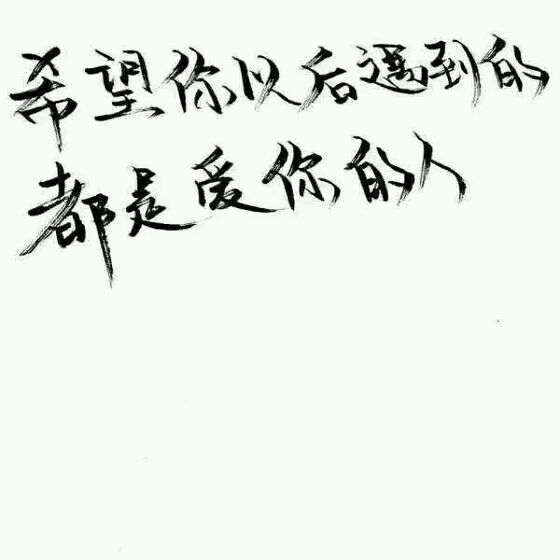 希望你以后遇到的
都是爱你的人